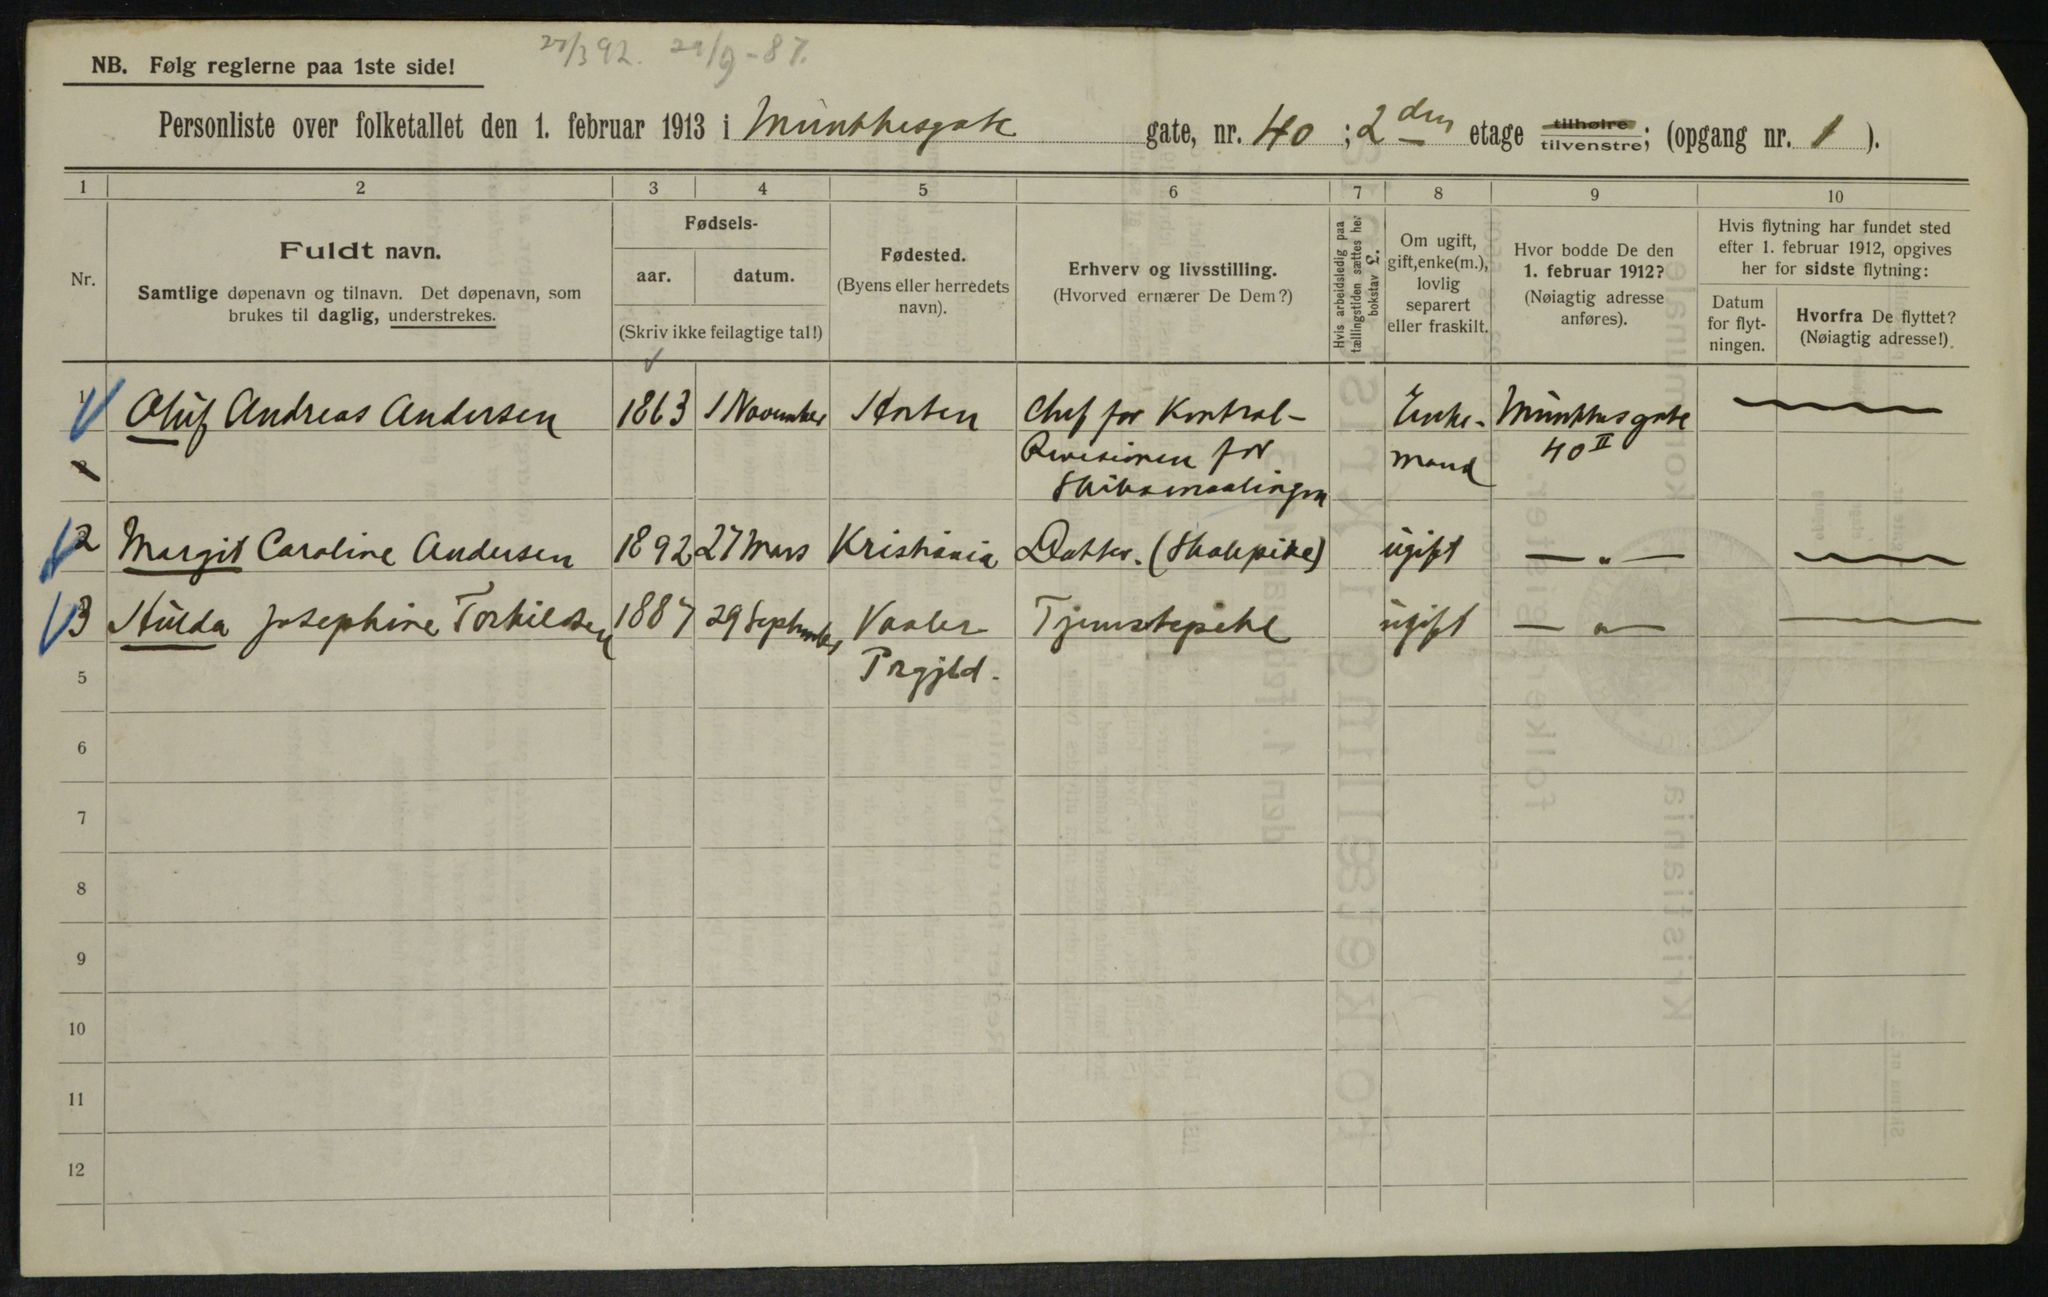 27/3 92. 29/9-87.
NB. Følg reglerne paa 1ste side!
Personliste over folketallet den 1. februar 1913 i Munthesgate gate, nr. 40 ; 2den etage tilhøire tilvenstre; (opgang nr. 1 ).
1 2 3 4 5 6 7 8 9 10
Nr.
Fuldt navn.
Samtlige døpenavn og tilnavn. Det døpenavn, som
brukes til daglig, understrekes.
Fødsels-
aar. datum.
(Skriv ikke feilagtige tal!)
Fødested.
(Byens eller herredets
navn).
Erhverv og livsstilling.
(Hvorved ernærer De Dem?)
Hvis arbeidsledig paa
tællingstiden sættes her
bokstav L.
Om ugift,
gift, enke(m.),
lovlig
separert
eller fraskilt.
Hvor bodde De den
1. februar 1912?
(Nøiagtig adresse
anføres).
Hvis flytning har fundet sted
efter 1. februar 1912, opgives
her for sidste flytning:
Datum
for flyt-
ningen.
Hvorfra De flyttet?
(Nøiagtig adresse!)
1 Oluf Andreas Andersen 1863 1 November Horten Chef for Kontrol- Enke- Munthesgate
Revisionen for mand 40 II
Skibsmaalingen
2 Margit Caroline Andersen 1892 27 Mars Kristiania Datter. (Skolepike) ugift — „ —
3 Hulda Josephine Torkildsen 1887 29 September Vaaler Tjenestepike ugift — „ —
5 Prgjld.
6
7
8
9
10
11
12